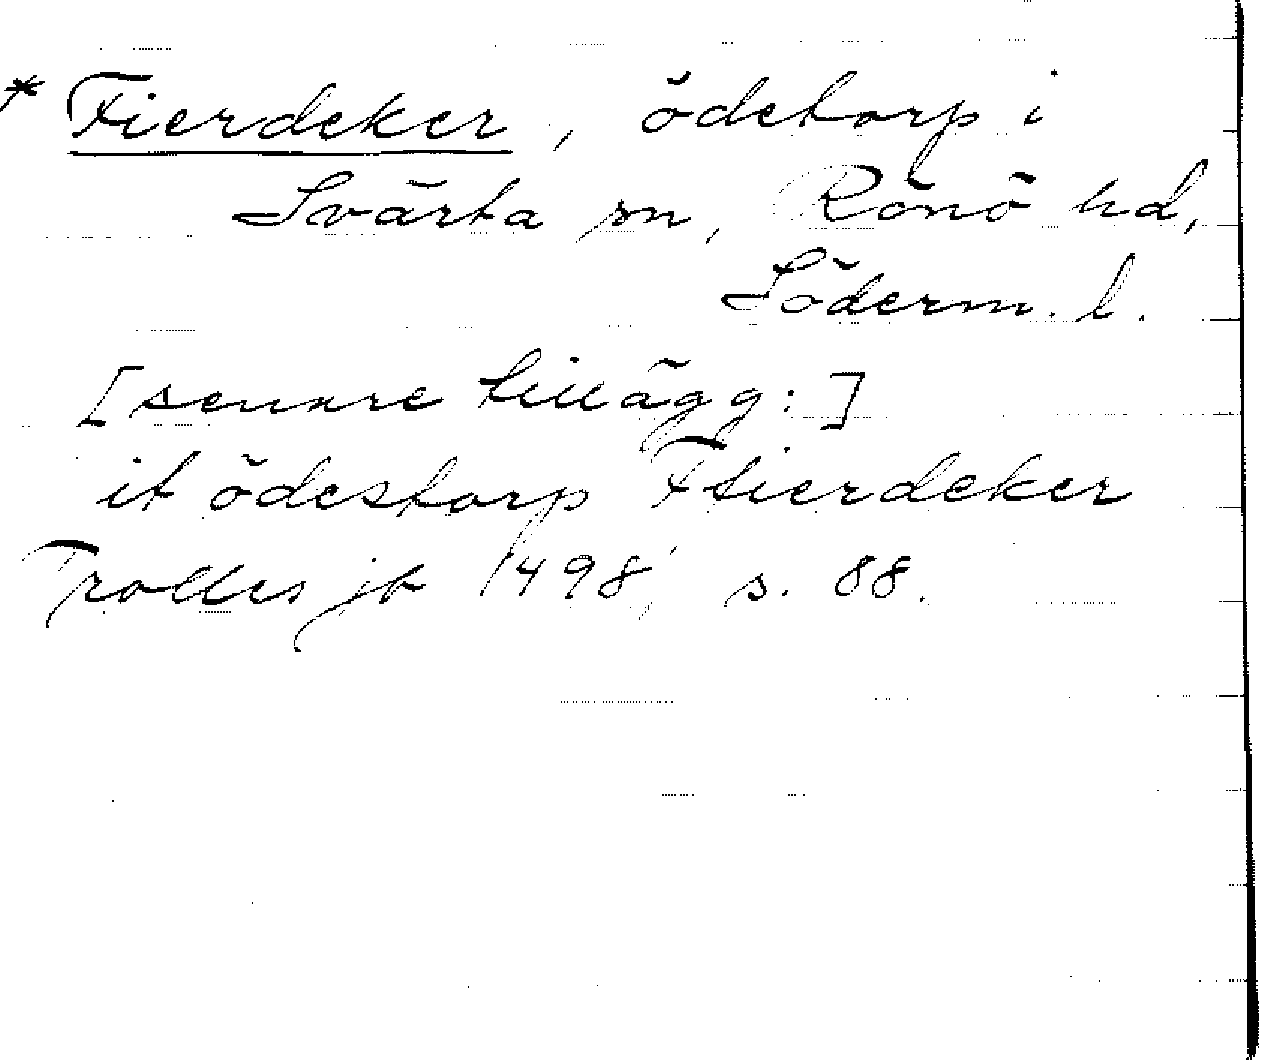 * Fierdeker, ödetorp i
Svärta sn, Rönö hd,
Söderm. l.
[senare tillägg:]
it ödestorp Ffierdeker
Trolles jb 1498, s. 88.